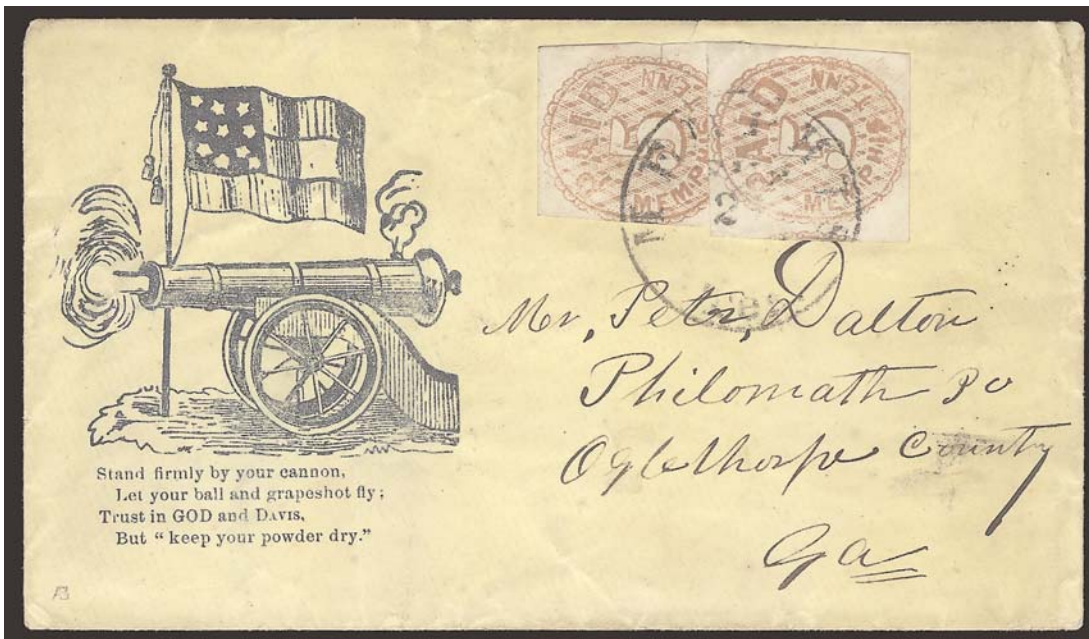 PAID
5
MEMPHIS
TENN
PAID
5
MEMPHIS
TENN
Mr, Petr, Dalton
Philomath PO
Oglethorpe County
Ga
Stand firmly by your cannon,
Let your ball and grapeshot fly;
Trust in GOD and DAVIS,
But "keep your powder dry."